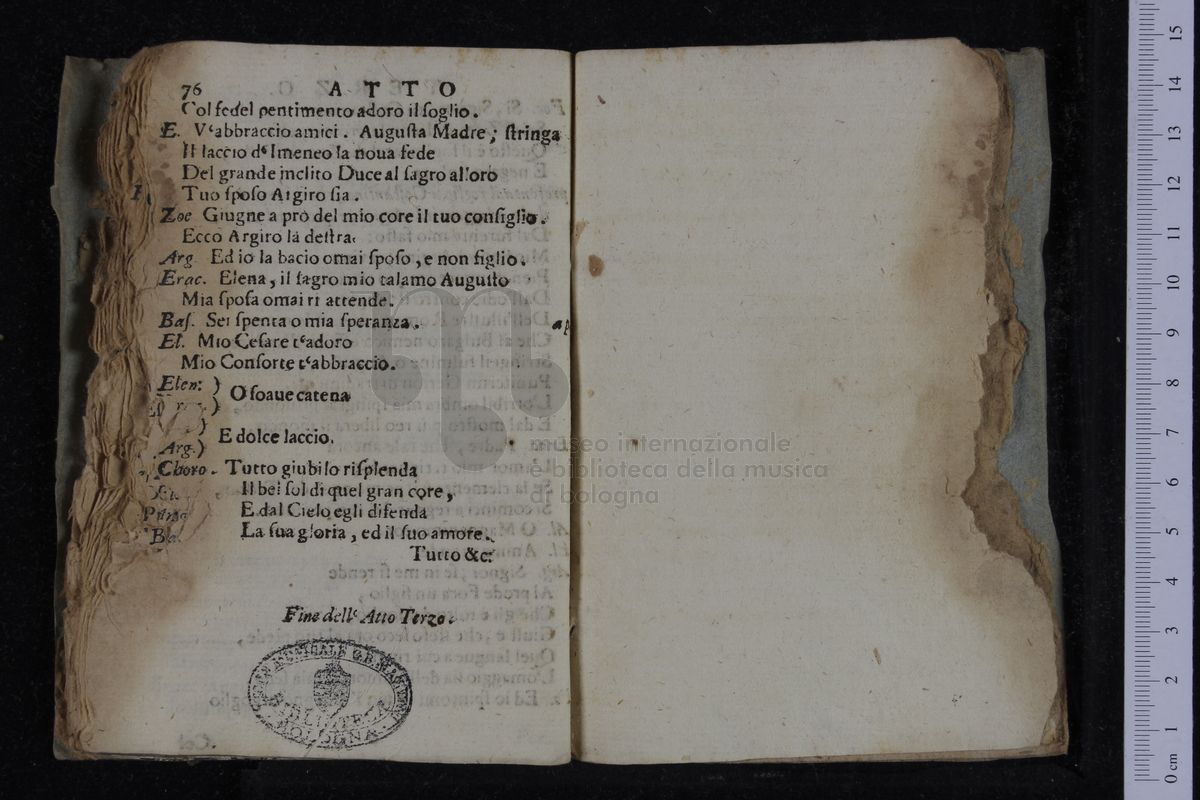 76 ATTO
Col fedel pentimento adoro il ſoglio.
E. V'abbraccio amici. Auguſta Madre; ſtringa
Il laccio d'Imeneo la noua fede
Del grande inclito Duce al ſagro alloro
Tuo ſpoſo Argiro ſia.
Zoe Giugne a prò del mio core il tuo conſiglio.
Ecco Argiro la deſtra.
Arg. Ed io la bacio omai ſpoſo, e non figlio.
Erac. Elena, il ſagro mio talamo Auguſto
Mia ſpoſa omai ti attende.
Baſ. Sei ſpenta o mia ſperanza. ap
El. Mio Ceſare t'adoro
Mio Conſorte t'abbraccio.
Elen: )
) O ſoaue catena
)
Arg.) E dolce laccio.
Choro. Tutto giubilo riſplenda
Il bel ſol di quel gran core,
E dal Cielo egli difenda
Ba La ſua gloria, ed il ſuo amore.
Tutto &c.
Fine dell' Atto Terzo.
BIBLIOTECA
BOLOGNA
museo internazionale
e biblioteca della musica
di bologna
0 cm 1 2 3 4 5 6 7 8 9 10 11 12 13 14 15